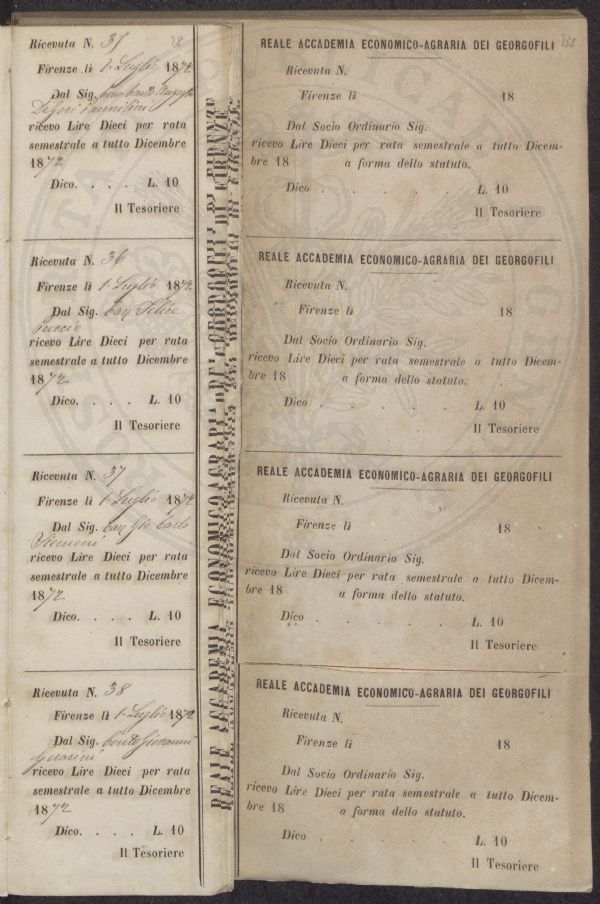 28
Ricevuta N. 35
Firenze lì 1. Luglio 1872
Dal Sig.
ricevo Lire Dieci per rata
semestrale a tutto Dicembre
1872
Dico. . . . L. 10
Il Tesoriere
Ricevuta N. 36
Firenze lì 1. Luglio 1872
Dal Sig. Cav. Felice
ricevo Lire Dieci per rata
semestrale a tutto Dicembre
1872
Dico. . . . L. 10
Il Tesoriere
Ricevuta N. 37
Firenze lì 1. Luglio 1872
Dal Sig. Cav. Gio. Carlo
Siemoni
ricevo Lire Dieci per rata
semestrale a tutto Dicembre
1872
Dico. . . . L. 10
Il Tesoriere
Ricevuta N. 38
Firenze lì 1. Luglio 1872
Dal Sig. Conte Giovanni
Guarini
ricevo Lire Dieci per rata
semestrale a tutto Dicembre
1872
Dico. . . . L. 10
Il Tesoriere
REALE ACCADEMIA ECONOMICO-AGRARIA DEI GEORGOFILI DI FIRENZE
REALE ACCADEMIA ECONOMICO-AGRARIA DEI GEORGOFILI
Ricevuta N.
Firenze lì 18
Dal Socio Ordinario Sig.
ricevo Lire Dieci per rata semestrale a tutto Dicem-
bre 18 a forma dello statuto.
Dico . . . . . L. 10
Il Tesoriere
REALE ACCADEMIA ECONOMICO-AGRARIA DEI GEORGOFILI
Ricevuta N.
Firenze lì 18
Dal Socio Ordinario Sig.
ricevo Lire Dieci per rata semestrale a tutto Dicem-
bre 18 a forma dello statuto.
Dico . . . . . L. 10
Il Tesoriere
REALE ACCADEMIA ECONOMICO-AGRARIA DEI GEORGOFILI
Ricevuta N.
Firenze lì 18
Dal Socio Ordinario Sig.
ricevo Lire Dieci per rata semestrale a tutto Dicem-
bre 18 a forma dello statuto.
Dico . . . . . L. 10
Il Tesoriere
REALE ACCADEMIA ECONOMICO-AGRARIA DEI GEORGOFILI
Ricevuta N.
Firenze lì 18
Dal Socio Ordinario Sig.
ricevo Lire Dieci per rata semestrale a tutto Dicem-
bre 18 a forma dello statuto.
Dico . . . . . L. 10
Il Tesoriere